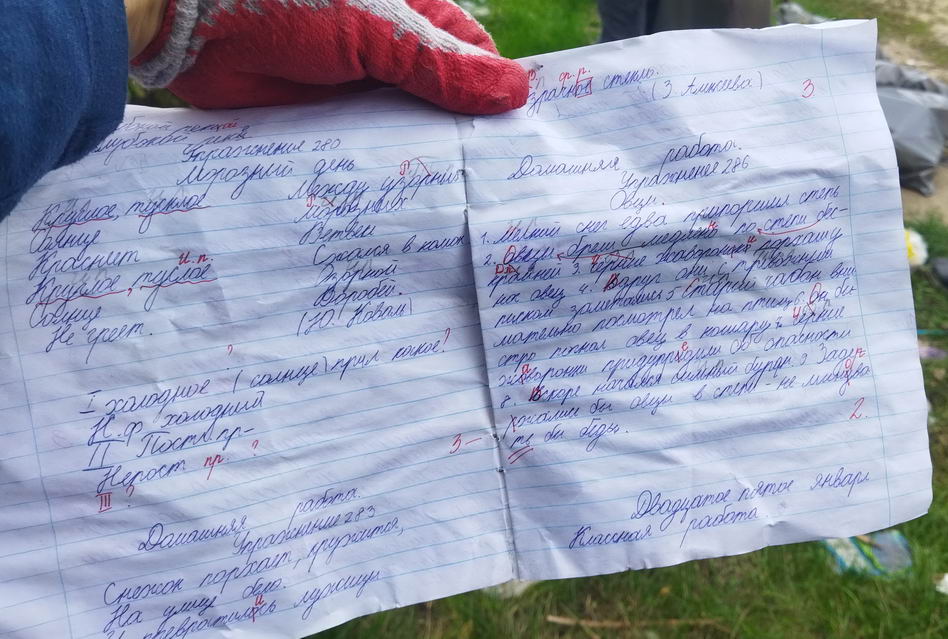 Упражнение 280
Морозный день
Круглое, тусклое
Солнце
Краснеет
и.п.
Круглое, тусклое
Солнце
Не греет.
Между узорных
Морозных
Ветвей
Сжался в комок
Зоркий
Воробей.
(Ю. Коваль)
?
I холодное (солнце) прил какое?
Н.ф. холодный
II Пост. пр-
Непост пр. ?
III ?
3-
Домашняя работа.
Упражнение 283
Снежок порхает, кружится,
На улице бело.
И превратились лужицы
ф. р.
зрачное стекло.
(З. Алексеева)
3
Домашняя работа.
Упражнение 286
Овцы.
1. Мелкий снег едва припорошил степь
2. Овцы брели медленно по степи бес-
крайней 3. Черные жаворонки порхали
над овец 4. Вдруг они с тревожным
писком заметались 5 Старший чабан вни
мательно посмотрел на птиц 6. Он бы
стро погнал овец в кошару 7. Черные
жаворонки придупредили об опасности
8. Вскоре начался сильный буран. 9 Заде
ржались бы овцы в степи - не миновать
те бы беды.
2.
Двадцатое пятое январе
Классная работа.